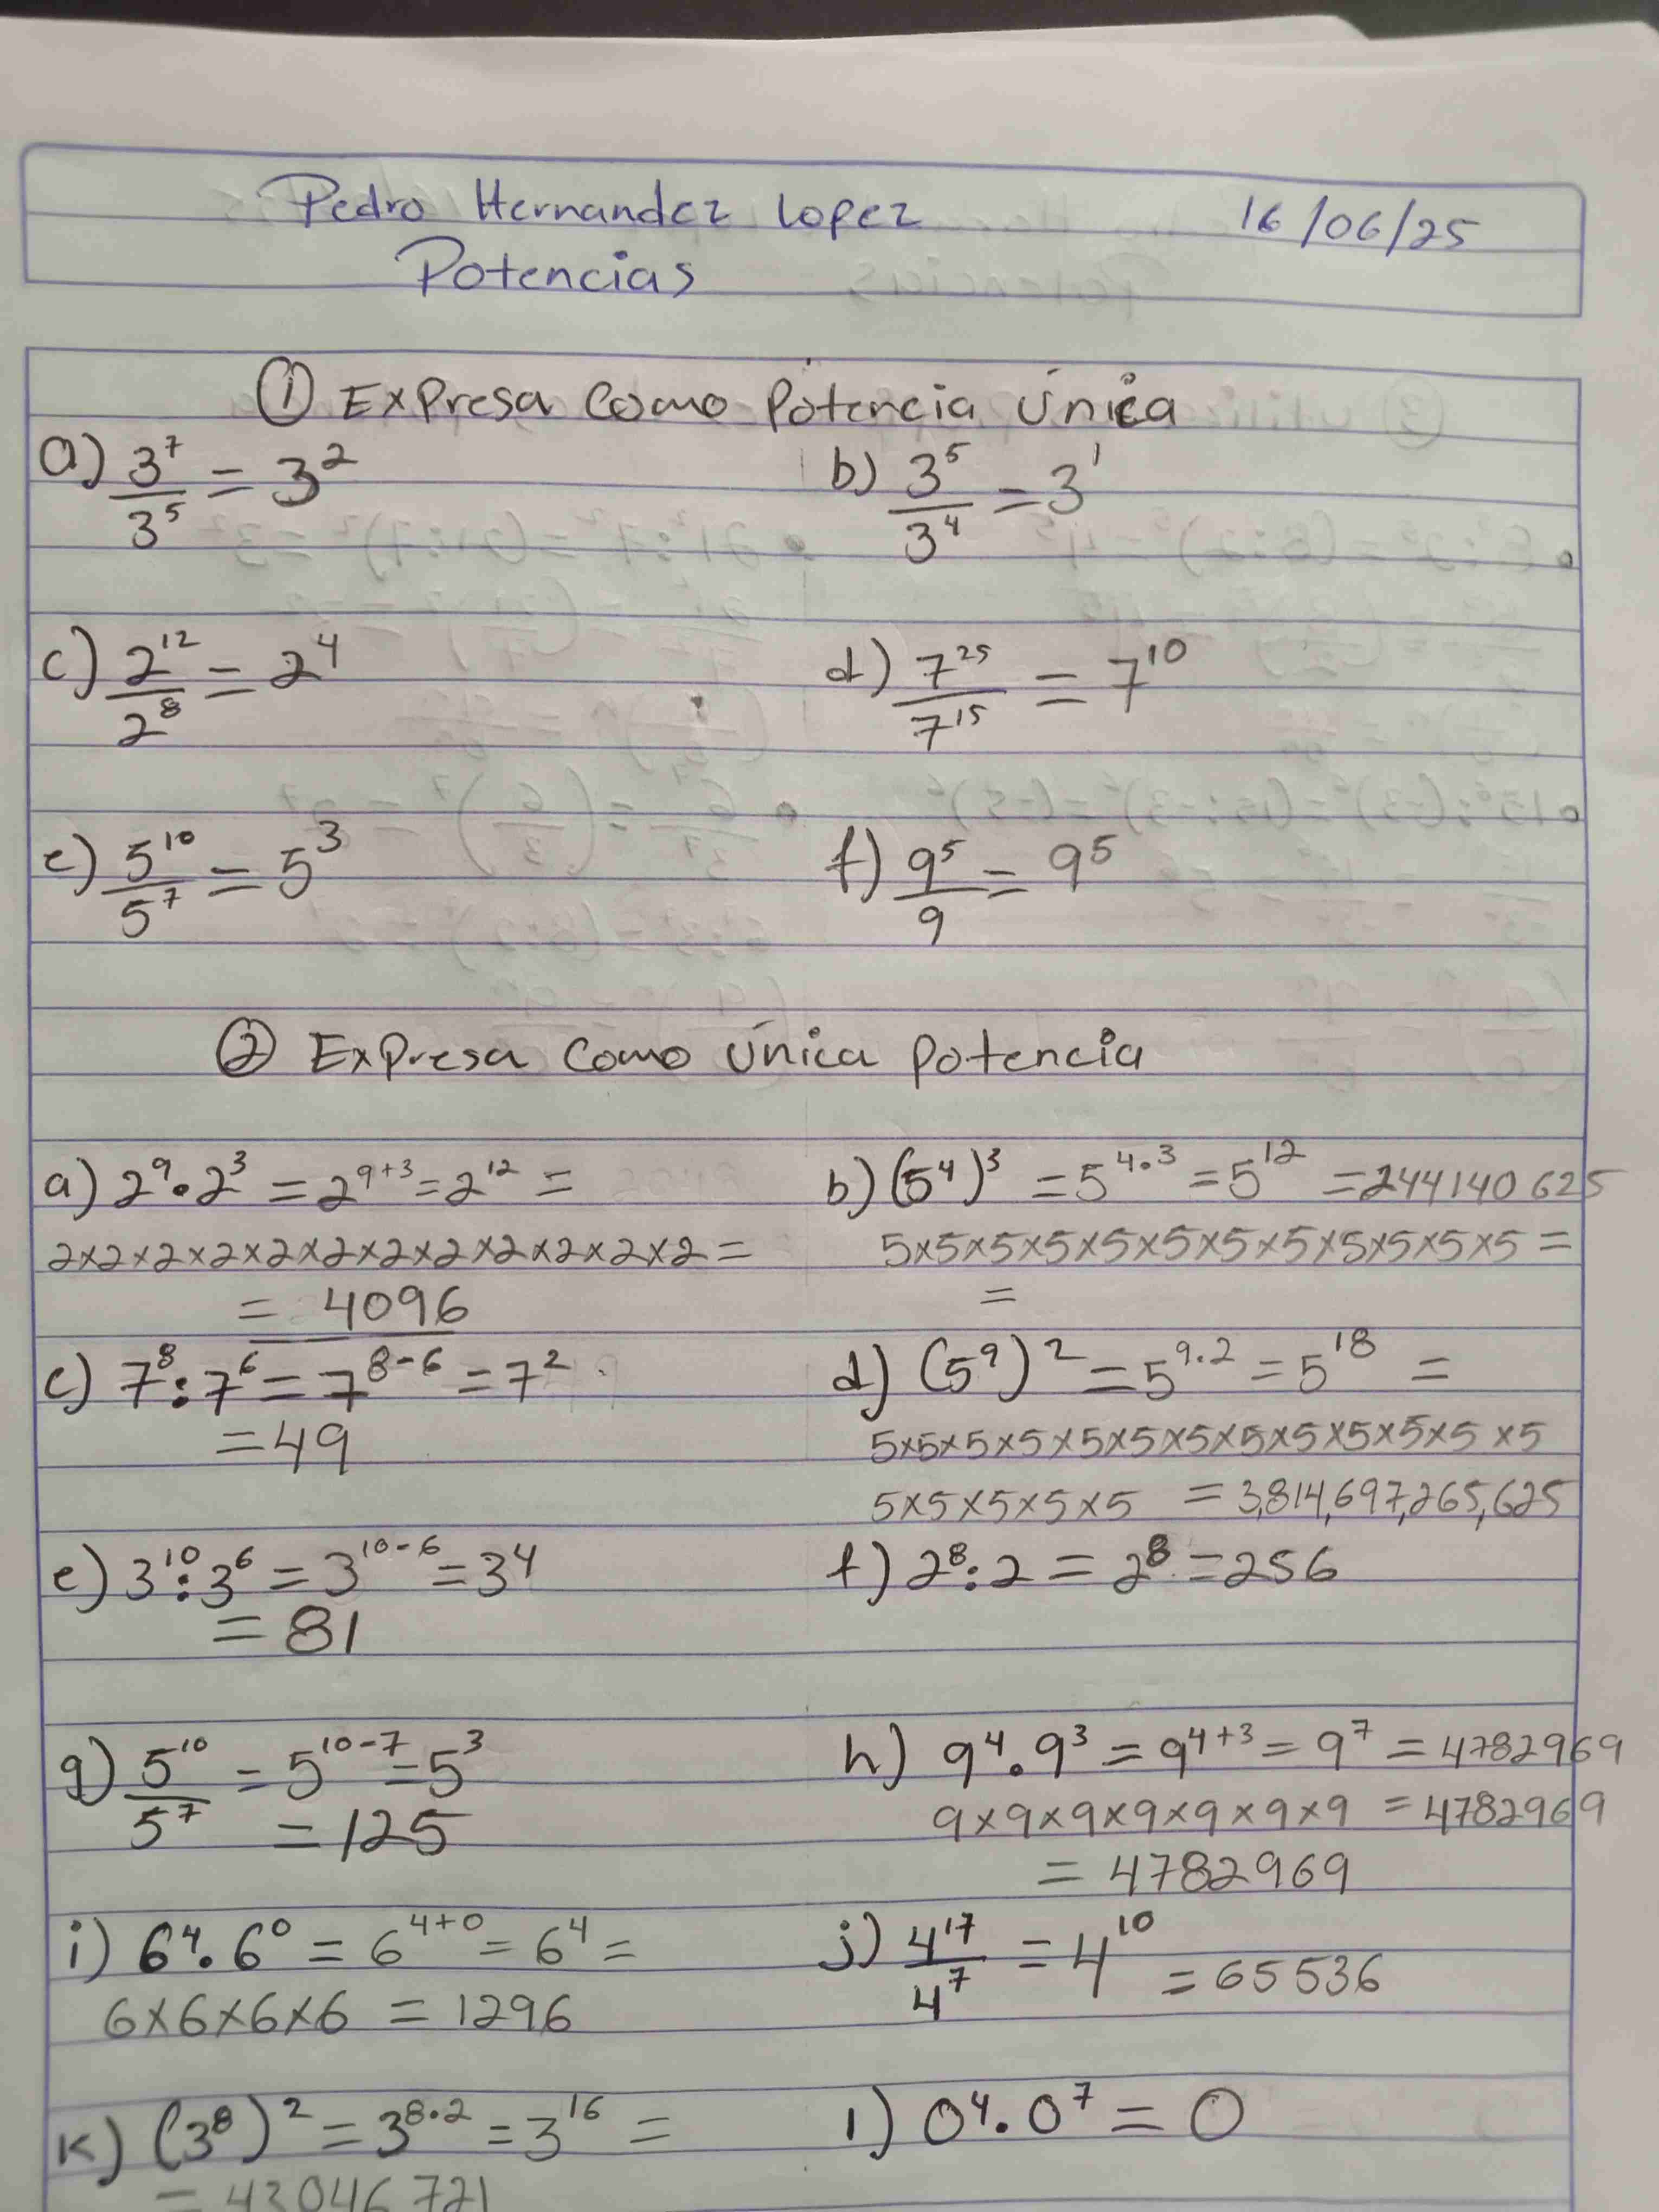 Pedro Hernandez Lopez 16/06/25
Potencias
① Expresa como potencia única
a) 3⁷/3⁵ = 3² b) 3⁵/3⁴ = 3¹
c) 2¹²/2⁸ = 2⁴ d) 7²⁵/7¹⁵ = 7¹⁰
e) 5¹⁰/5⁷ = 5³ f) 9⁵/9 = 9⁵
② Expresa como única potencia
a) 2⁹·2³ = 2⁹⁺³ = 2¹² = b) (5⁴)³ = 5⁴·³ = 5¹² = 244140625
2×2×2×2×2×2×2×2×2×2×2×2 = 5×5×5×5×5×5×5×5×5×5×5×5 =
= 4096 =
c) 7⁸:7⁶ = 7⁸⁻⁶ = 7² d) (5⁹)² = 5⁹·² = 5¹⁸ =
= 49 5×5×5×5×5×5×5×5×5×5×5×5×5
5×5×5×5×5 = 3,814,697,265,625
e) 3¹⁰:3⁶ = 3¹⁰⁻⁶ = 3⁴ f) 2⁸:2 = 2⁸ = 256
= 81
g) 5¹⁰/5⁷ = 5¹⁰⁻⁷ = 5³ h) 9⁴·9³ = 9⁴⁺³ = 9⁷ = 4782969
= 125 9×9×9×9×9×9×9 = 4782969
= 4782969
i) 6⁴·6⁰ = 6⁴⁺⁰ = 6⁴ = j) 4¹⁷/4⁷ = 4¹⁰ = 65536
6×6×6×6 = 1296
k) (3⁸)² = 3⁸·² = 3¹⁶ = l) 0⁴·0⁷ = 0
= 43046721